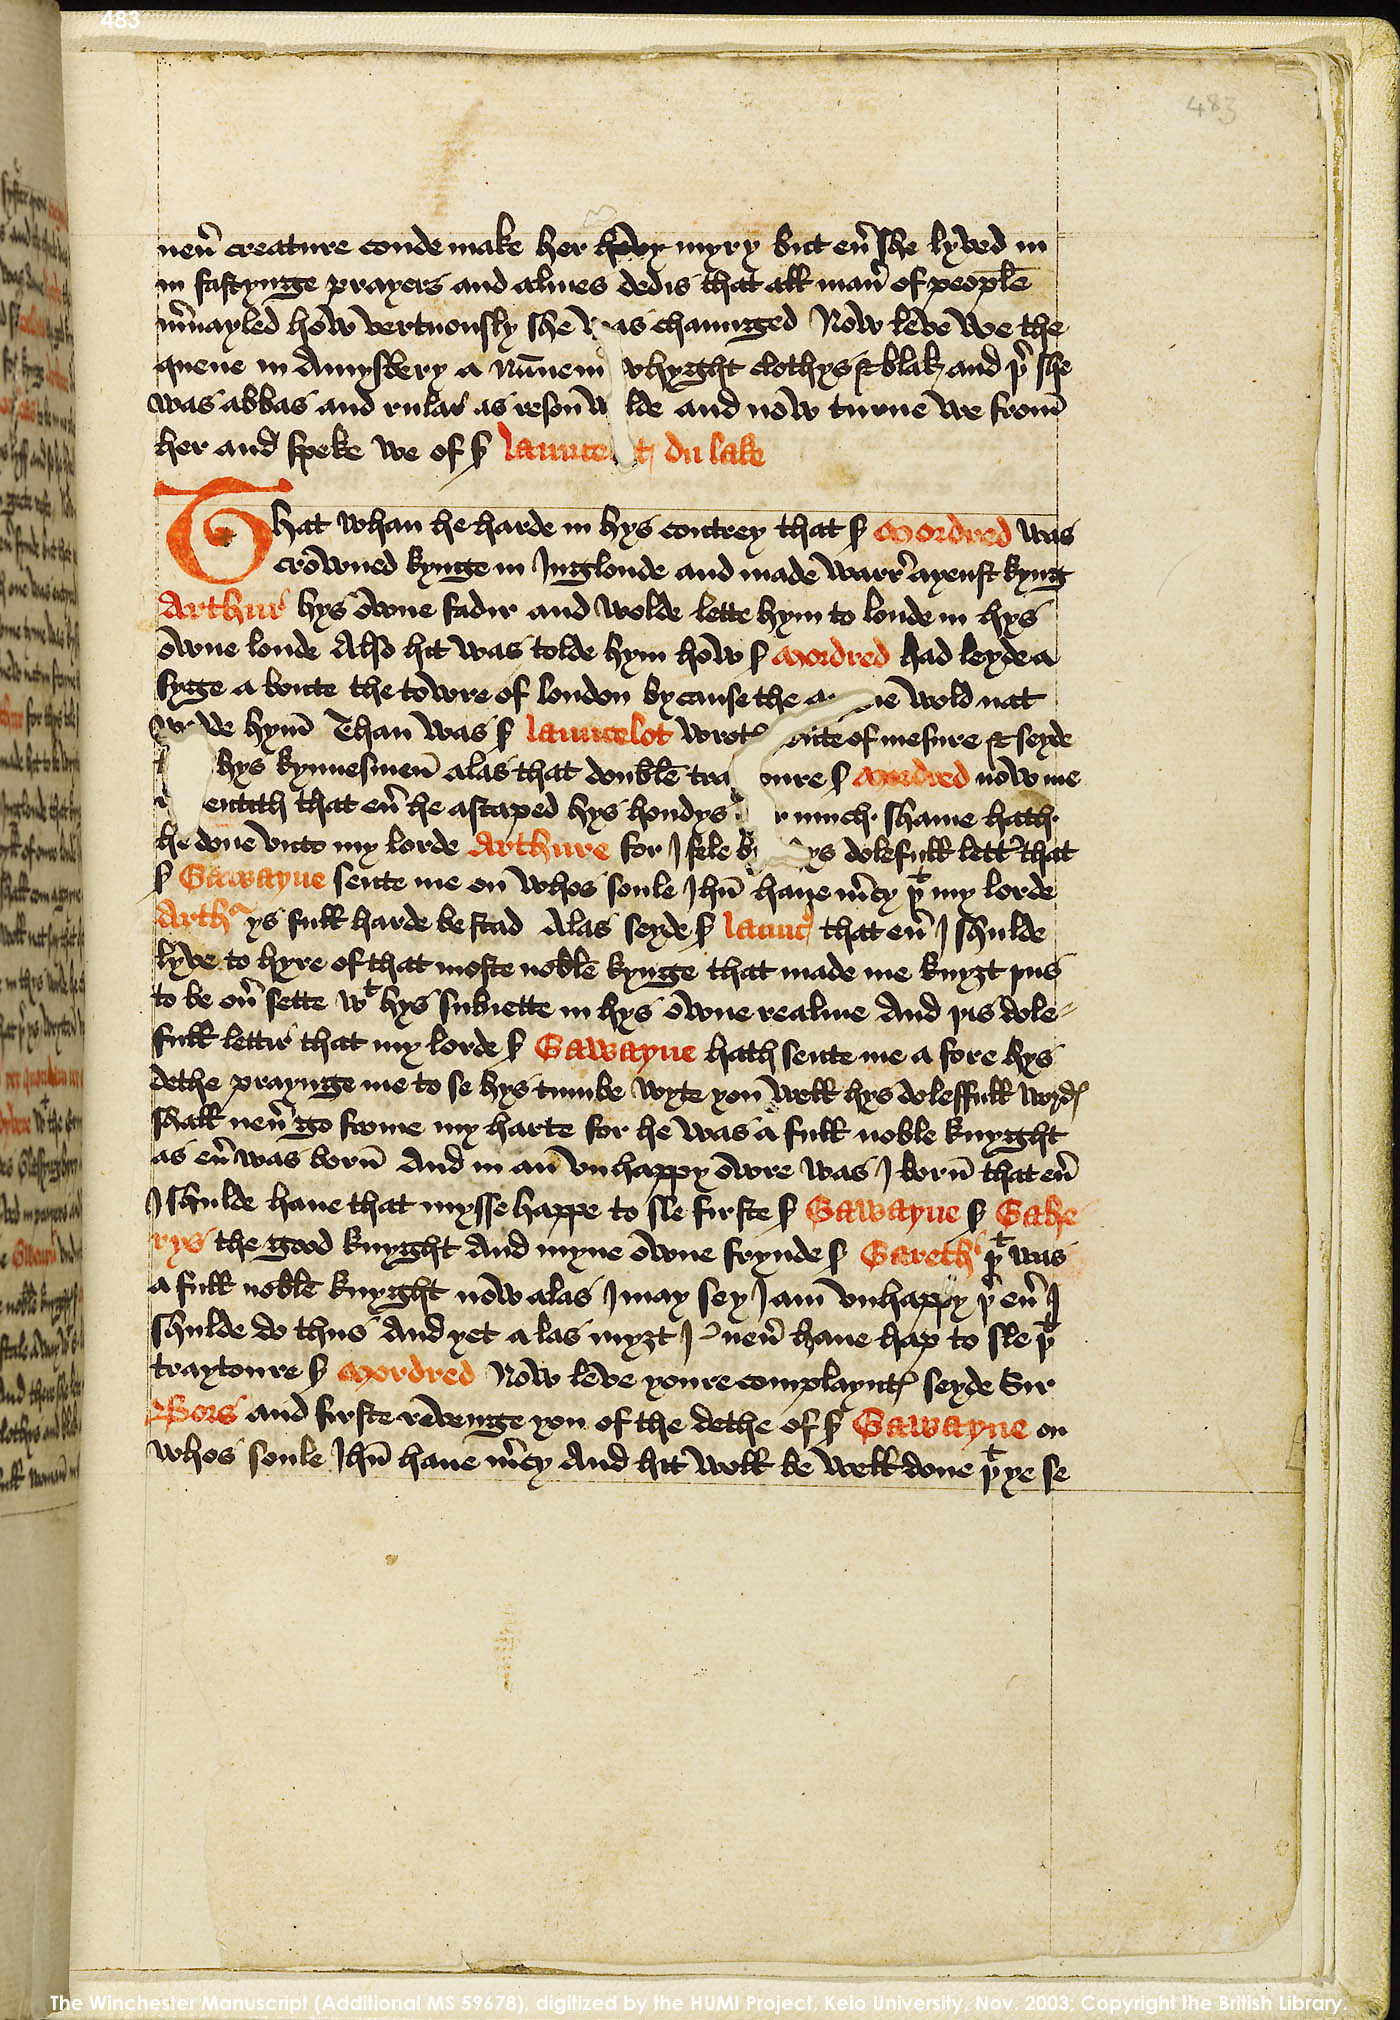 483
483
neũ creature coude make her hevy myry but eũ she lyved in
in fastynge prayers and almes dedis that all maũ of people
mũayled how vertuously she was chaunged Now leve we the
quene in Amysbery a Nunne in whyght clothys & blak and þͬ she
was abbas and rular as reson w lde and now turne we from
her and speke we of ẜ Launce t du lake
That whan he harde in hys contrey that ẜ Mordred was
crowned kynge in Inglonde and made warre ayenst kyng
Arthur hys owne fadir and wolde lette hym to londe in hys
owne londe Also hit was tolde hym how ẜ Mordred had leyde a
syge a boute the towre of london by cause the wold nat
hym Than was ẜ Launcelot wroth oute of mesure & seyde
hys kynnesmen alas that double tra oure ẜ Mordred now me
entith that eũ he ascaped hys hondys much shame hath
he done vnto my lorde Arthure for I fele b ys dolefull lettͬ that
ẜ Gawayne sente me on whos soule Ihũ have mͬcy þͭ my lorde
Arthͬ ys full harde be stad Alas seyde ẜ Launc that eũ I shulde
lyve to hyre of that moste noble kynge that made me knyȝt þus
to be oũ sette wͭ hys subiette in hys owne realme And þis dole
full lettir that my lorde ẜ Gawayne hath sente me a fore hys
dethe praynge me to se hys tumbe wyte you well hys doleffull wordꝭ
shall neũ go frome my harte for he was a full noble knyght
as eũ was born And in an vnhappy owre was I born that eũ
I shulde have that mysse happe to sle firste ẜ Gawayne ẜ Gahe
rys the good knyght And myne owne frynde ẜ Gareth þͭ was
a full noble knyght now alas I may sey I am vnhappy þͭ eũ I
shulde do thus And yet a las myȝt I neũ have hap to sle þͭ
traytoure ẜ Mordred Now leve youre complayntꝭ seyde Sir
Bors and firste revenge you of the dethe of ẜ Gawayne on
whos soule Ihũ have mͬcy And hit woll be well done þͭ ye se
The Winchester Manuscript (Additional MS 59678), digitized by the HUMI Project, Keio University, Nov. 2003; Copyright the British Library.